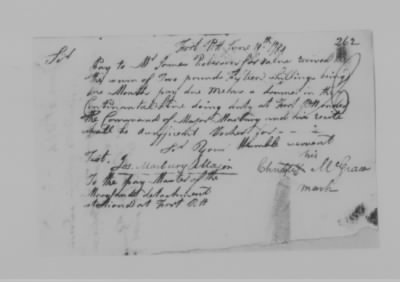 262
Fort Pitt June 14th 1784
Sir
Pay to Mr James Robinson for value received
the sum of Two pounds fifteen shillings being
one Months pay due me as a in the
Continental line doing duty at Fort Pitt under
the Command of Major Marbury and his receipt
shall be a sufficient Voucher for
Sir Your Humble servant
Test. his
Jos. Marbury Major McGraw
To the pay Master of the mark
Maryland detachment
stationed at Fort Pitt